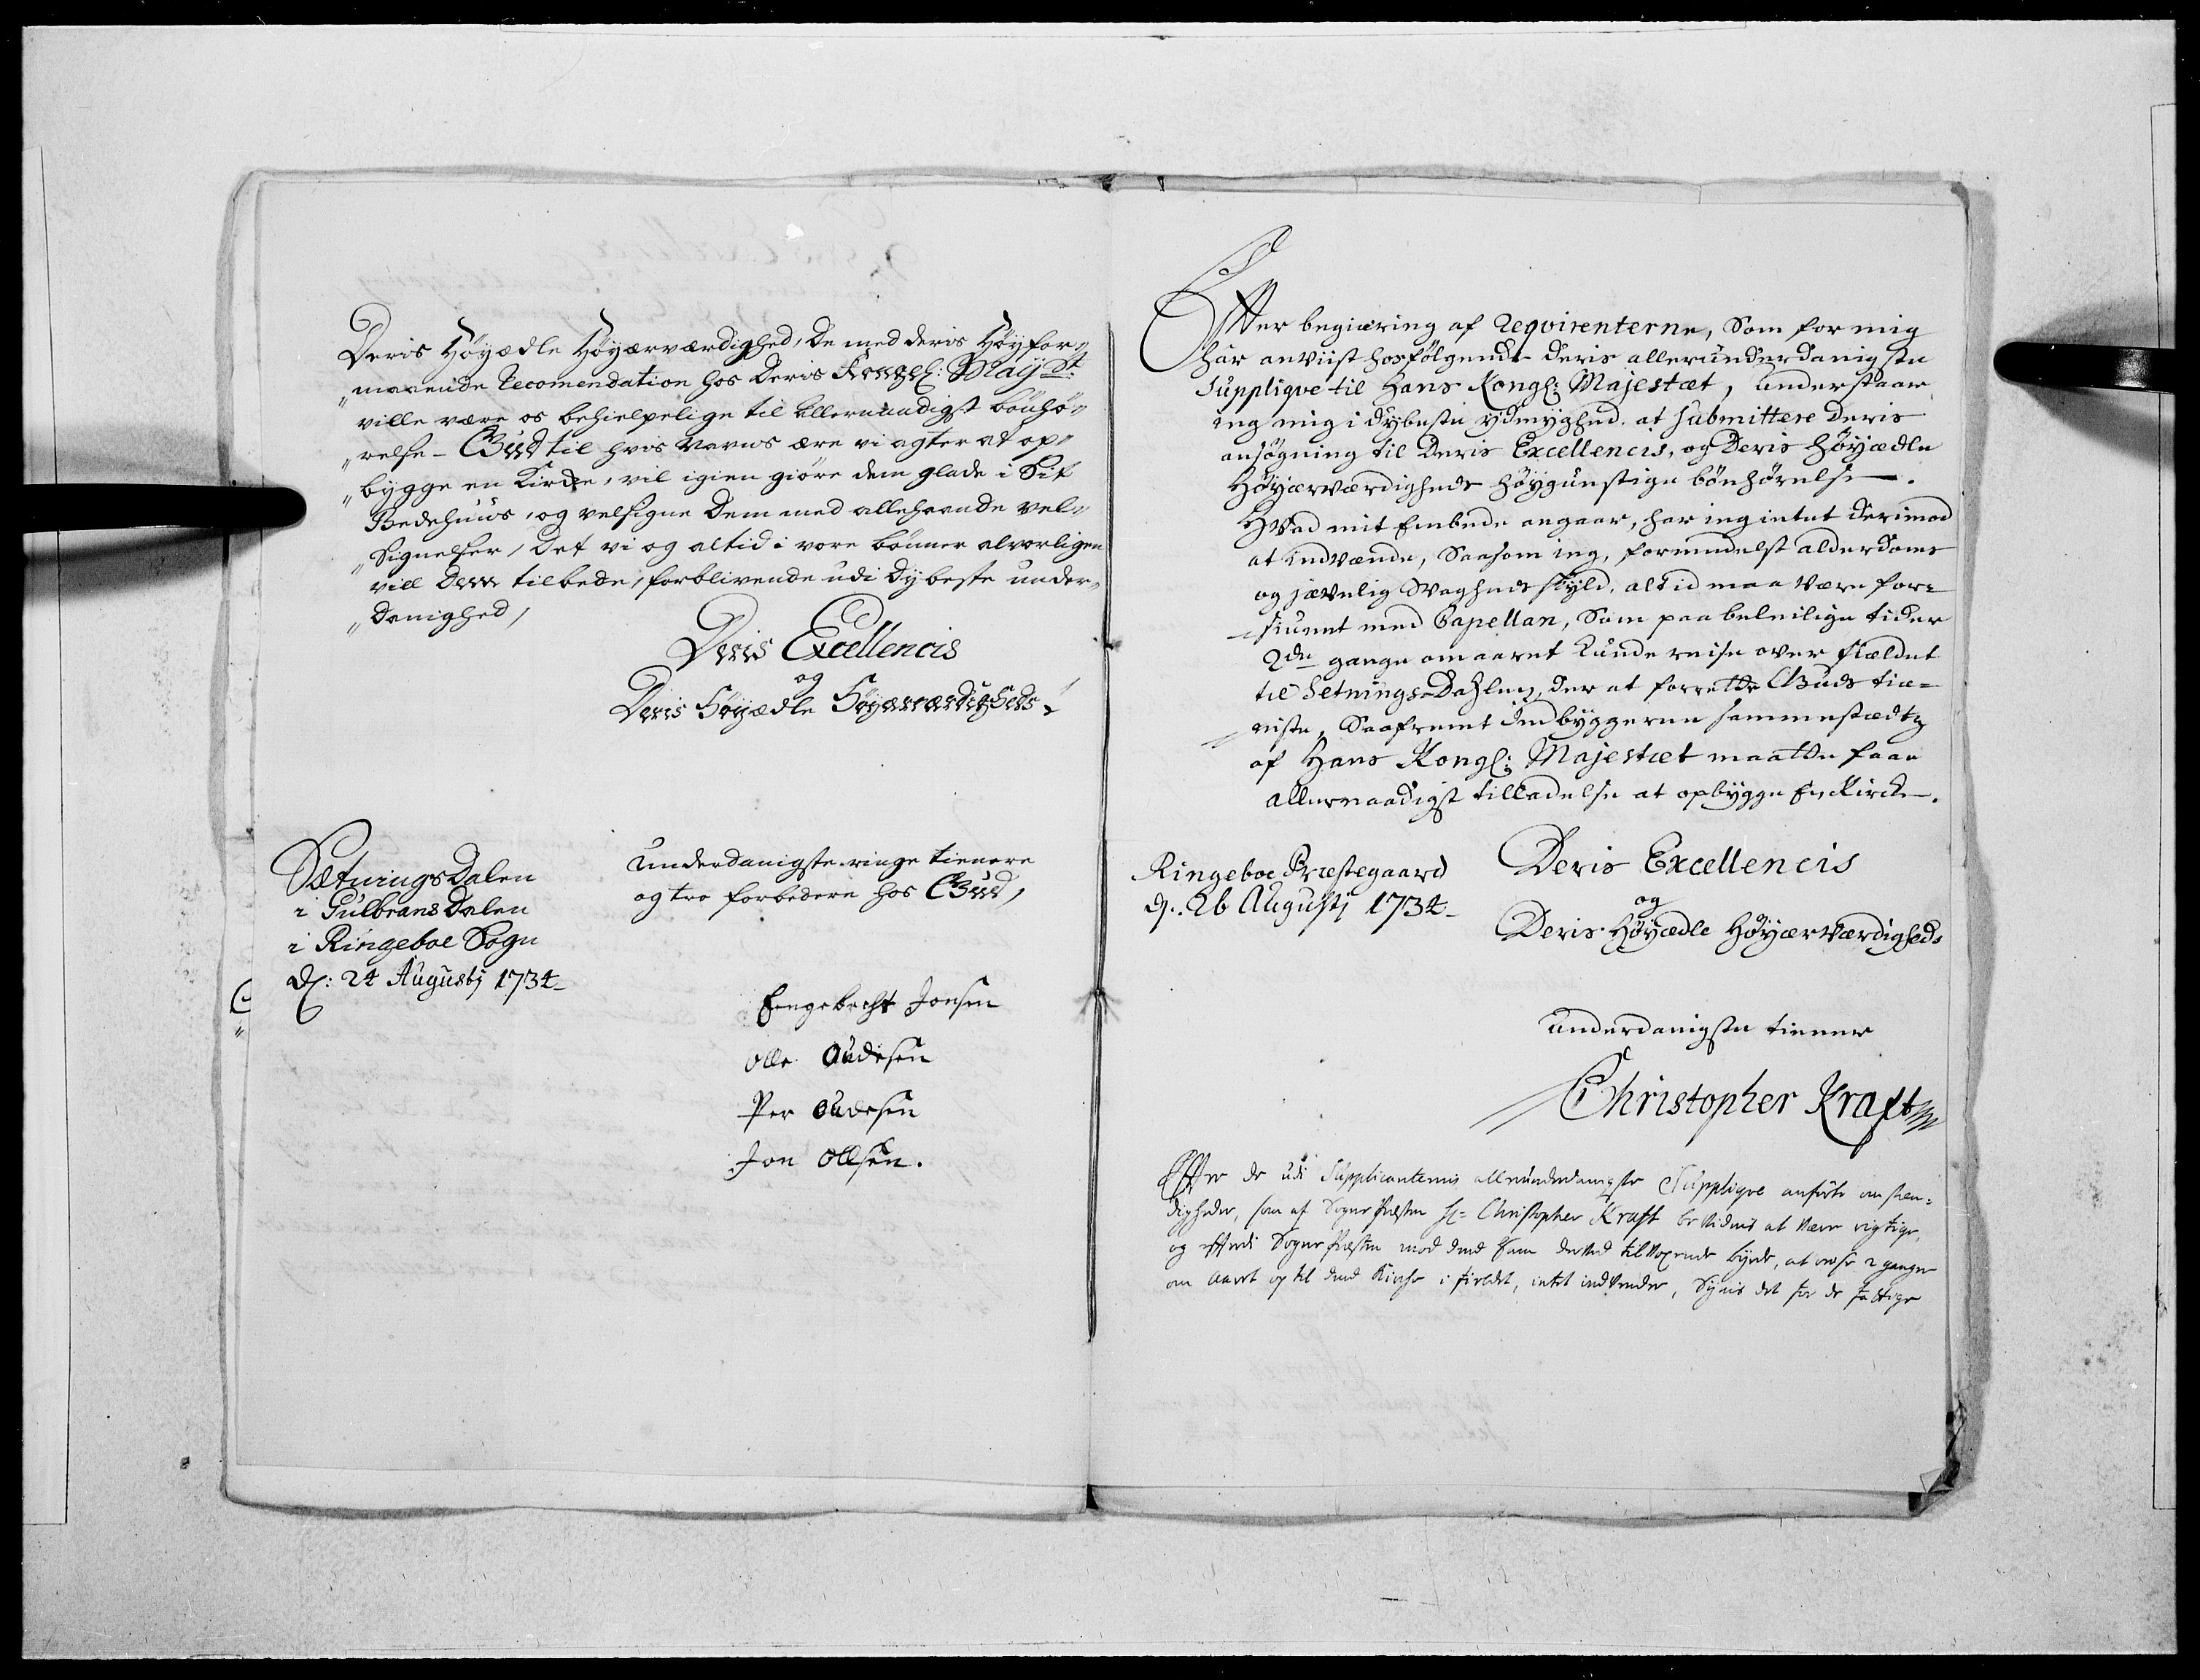 Deris Höyædle Höyærværdighed, De med deris Höyfor„
„maaende Recomendation hos Deris Kongel: Mayst:
ville være os behielpelige til Allernaadigst bönhö„
„relse – Gud til hvis Navns ære vi agter at op„
„bygge en Kircke, vil igien giöre dem glade i Sit
Bedehuus, og velsigne Dem med allehaande vel„
„Signelser, Det vi og altid i vore bönner alvorligen
vill Dem tilbede, forblivende udi Dybeste under„
„Danighed,
Deris Excellencis
og
Deris Höyædle Höyærværdigheds
SætningsDalen
i GulbransDalen
i Ringeboe Sogn
D: 24 Augustj 1734
underdanigste ringe tienere
og tro forbedere hos Gud,
Engebrecht Jonsen
Olle Oudesen
Per Oudesen
Jon Ollsen.
Effter begiæring af Reqvirenterne, Som for mig
har anviist hosfölgende deris allerunderdanigste
Supplique til Hans Kongl: Majestæt, understaar
ieg mig i dybeste ydmyghed at submittere deris
ansögning til Deris Excellencis, og Deris Höyædle
Höyærværdigheds höygunstige bönhörelse.
Hvad mit Embede angaar, har ieg intet derimod
at indvende, Saasom ieg, formedelst alderdoms
og jævnlig Svagheds skyld, altid maa være for=
=siunet med Capellan, Som paa beleilige tider
2de gange om aaret kunde reise over fieldet
til Setnings-Dahlen, der at forrette Guds tie=
=niste, Saafremt indbyggerne sammestædtz
af Hans Kongl: Majestæt maatte faae
allernaadigst tilladelse at opbygge En Kircke.
Ringeboe Præstegaard
d. 26 Augustj 1734
Deris Excellencis
og
Deris Höyædle Höyærværdigheds
underdanigste tiener
Christopher Kraft
Effter de udi Supplicanternis allerunderdanigste Supplique anförte omstæn=
digheder, som af Sogne Præsten Hr Christopher Kraft bevidnes at være rigtige,
og efftterdi Sogne Præsten mod dend ham derved tilvoxende byrde, at reise 2 gange
om Aaret op til dend Kirche i fieldet, intet indvender, Synis det for de fattige